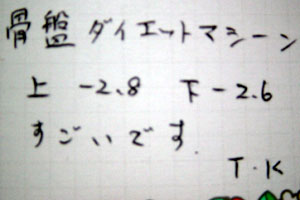 骨盤ダイエットマシーン
上 -2.8 下 -2.6
すごいです
T.K